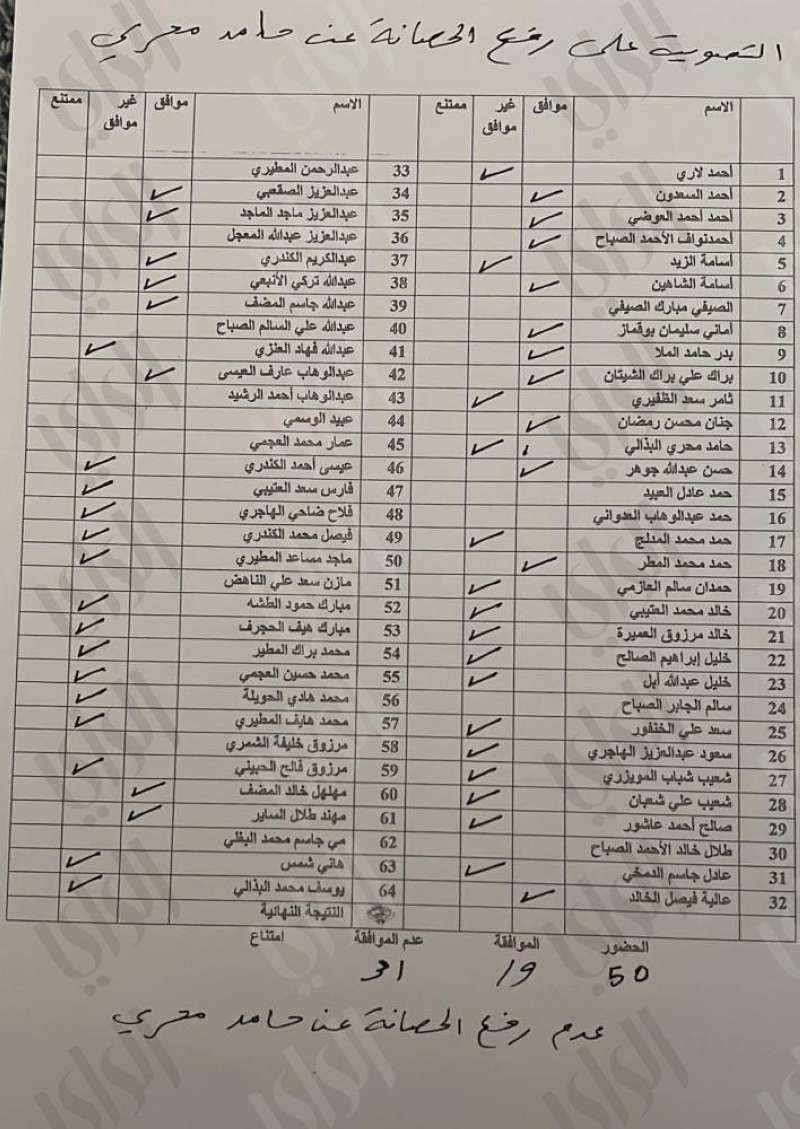 التصويت على رفع الحصانة عن حامد محري
الاسم موافق غير موافق ممتنع الاسم موافق غير موافق ممتنع
1 أحمد لاري ✓ 33 عبدالرحمن المطيري
2 أحمد السعدون ✓ 34 عبدالعزيز الصقعبي ✓
3 أحمد أحمد العوضي ✓ 35 عبدالعزيز ماجد الماجد ✓
4 أحمدنواف الأحمد الصباح ✓ 36 عبدالعزيز عبدالله المعجل
5 أسامة الزيد ✓ 37 عبدالكريم الكندري ✓
6 أسامة الشاهين ✓ 38 عبدالله تركي الأنبعي ✓
7 الصيفي مبارك الصيفي 39 عبدالله جاسم المضف ✓
8 أماني سليمان بوقماز ✓ 40 عبدالله علي السالم الصباح
9 بدر حامد الملا ✓ 41 عبدالله فهاد العنزي ✓
10 براك علي براك الشيتان ✓ 42 عبدالوهاب عارف العيسى ✓
11 ثامر سعد الظفيري ✓ 43 عبدالوهاب أحمد الرشيد
12 جنان محسن رمضان ✓ 44 عبيد الوسمي
13 حامد محري البذالي ✓ 45 عمار محمد العجمي
14 حسن عبدالله جوهر ✓ 46 عيسى أحمد الكندري ✓
15 حمد عادل العبيد 47 فارس سعد العتيبي ✓
16 حمد عبدالوهاب العدواني 48 فلاح ضاحي الهاجري ✓
17 حمد محمد المدلج ✓ 49 فيصل محمد الكندري ✓
18 حمد محمد المطر ✓ 50 ماجد مساعد المطيري ✓
19 حمدان سالم العازمي ✓ 51 مازن سعد علي الناهض
20 خالد محمد العتيبي ✓ 52 مبارك حمود الطشه ✓
21 خالد مرزوق العميرة ✓ 53 مبارك هيف الحجرف ✓
22 خليل إبراهيم الصالح ✓ 54 محمد براك المطير ✓
23 خليل عبدالله أبل ✓ 55 محمد حسين العجمي ✓
24 سالم الجابر الصباح 56 محمد هادي الحويلة ✓
25 سعد علي الخنفور ✓ 57 محمد هايف المطيري ✓
26 سعود عبدالعزيز الهاجري ✓ 58 مرزوق خليفة الشمري
27 شعيب شباب المويزري ✓ 59 مرزوق فالح الحبيني ✓
28 شعيب علي شعبان ✓ 60 مهلهل خالد المضف ✓
29 صالح أحمد عاشور ✓ 61 مهند طلال الساير ✓
30 طلال خالد الأحمد الصباح 62 مي جاسم محمد البغلي
31 عادل جاسم الدمخي ✓ 63 هاني شمس ✓
32 عالية فيصل الخالد ✓ 64 يوسف محمد البذالي ✓
النتيجة النهائية
الحضور الموافقة عدم الموافقة امتناع
50 19 31
عدم رفع الحصانة عن حامد محري
الراي